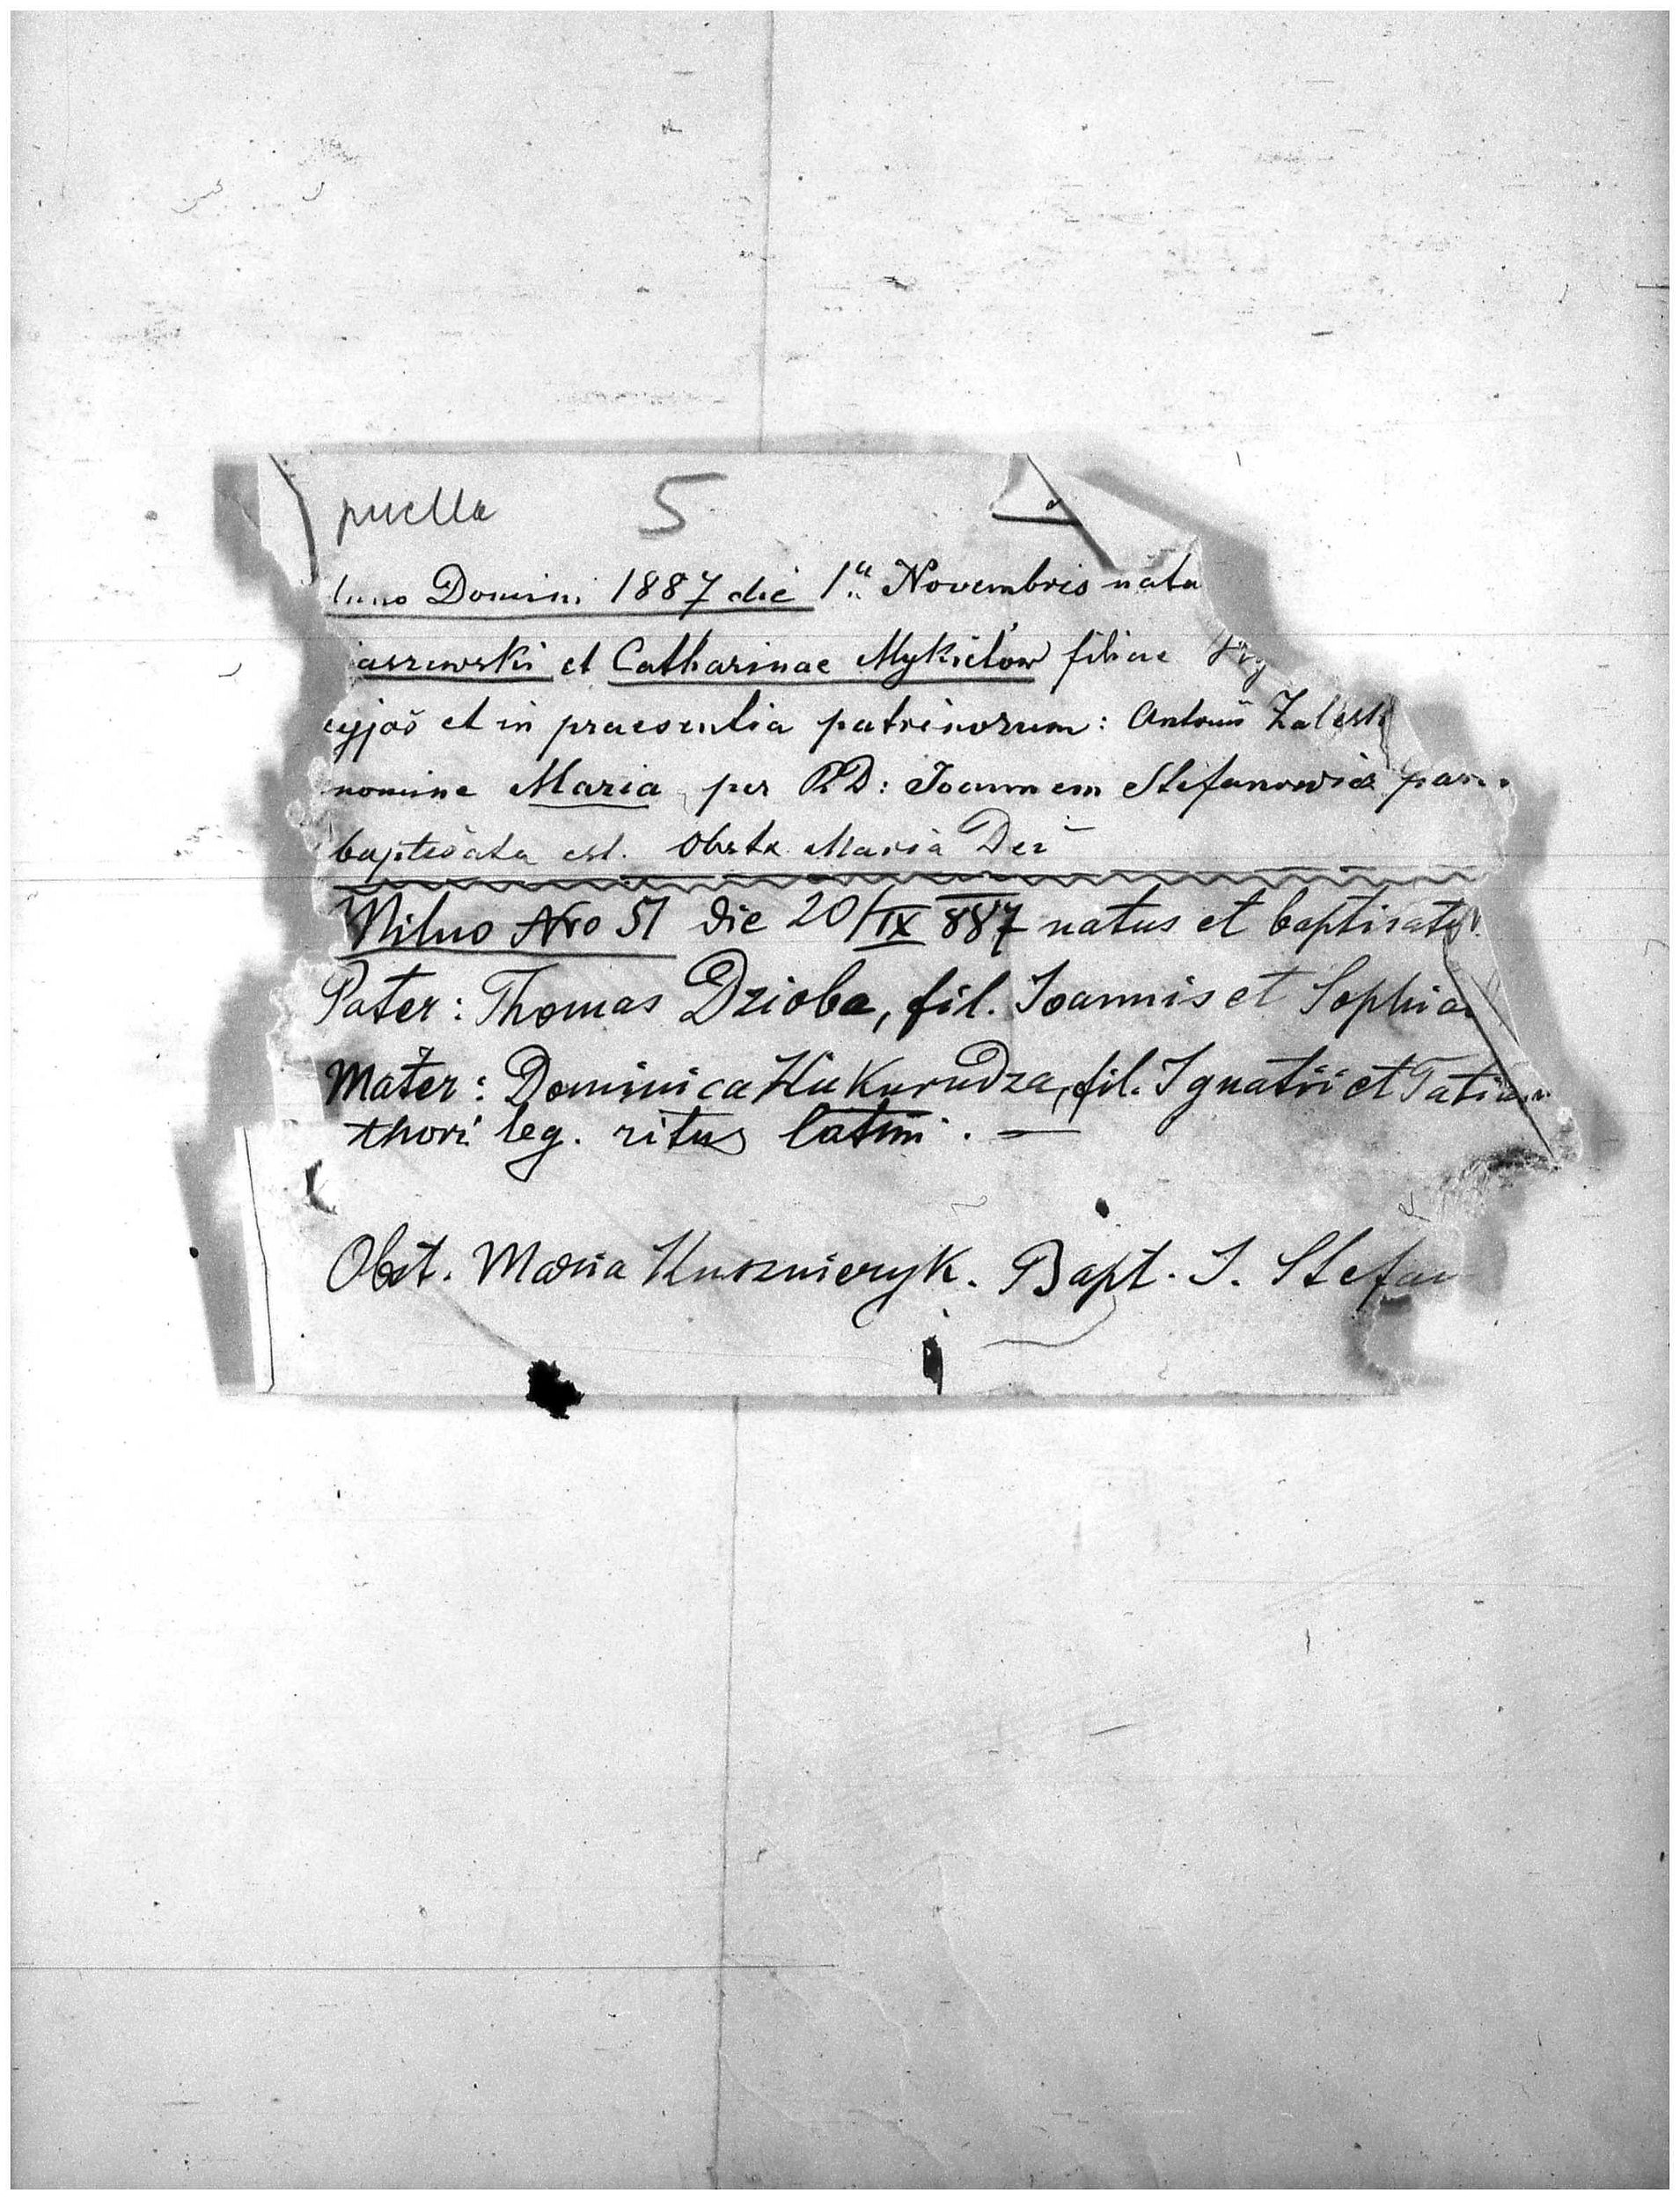 puella 5
Anno Domini 1887 die 1a Novembris nata
iaszewski et Catharinae Mykietów filiae
cyjoš et in praesentia patrinorum: Antonii Zalesk
nomine Maria per RD: Joannem Stefanowicz par
baptisata est. Obstx Maria Der
Milno Nro 51 die 20/IX 887 natus et baptisatus
Pater: Thomas Dzioba, fil. Joannis et Sophiae
Mater: Dominica Kukurudza, fil. Ignatii et Tatian
thori leg. ritus latini. —
Obst. Maria Kusznieryk. Bapt. J. Stefan